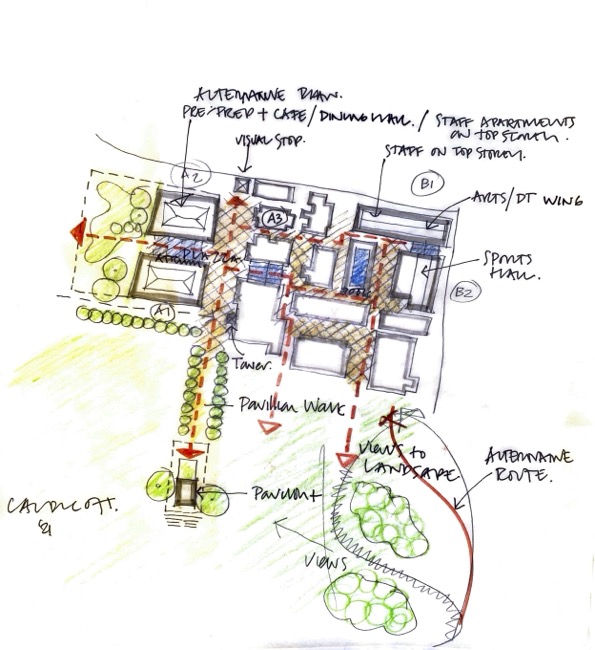 ALTERNATIVE
PRE-PREP + CAFE/DINING HALL. / STAFF APARTMENTS
ON TOP STOREY.
VISUAL STOP.
STAFF ON TOP STOREY.
A2
B1
ARTS/DT WING
A3
PLAZA
SPORTS
HALL.
B2
A1
Tower.
Pavilion Walk
VIEWS TO
LANDSCAPE
ALTERNATIVE
ROUTE.
Pavilion
VIEWS